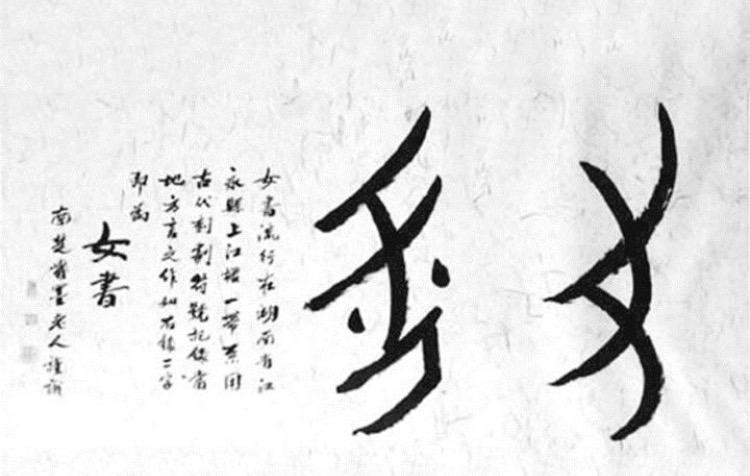 𛆁𛈬
女書流行在湖南省江
永縣上江墟一帶系用
古代刻劃符號記錄當
地方言之作如右錄二字
即為
女書
南楚墨老人